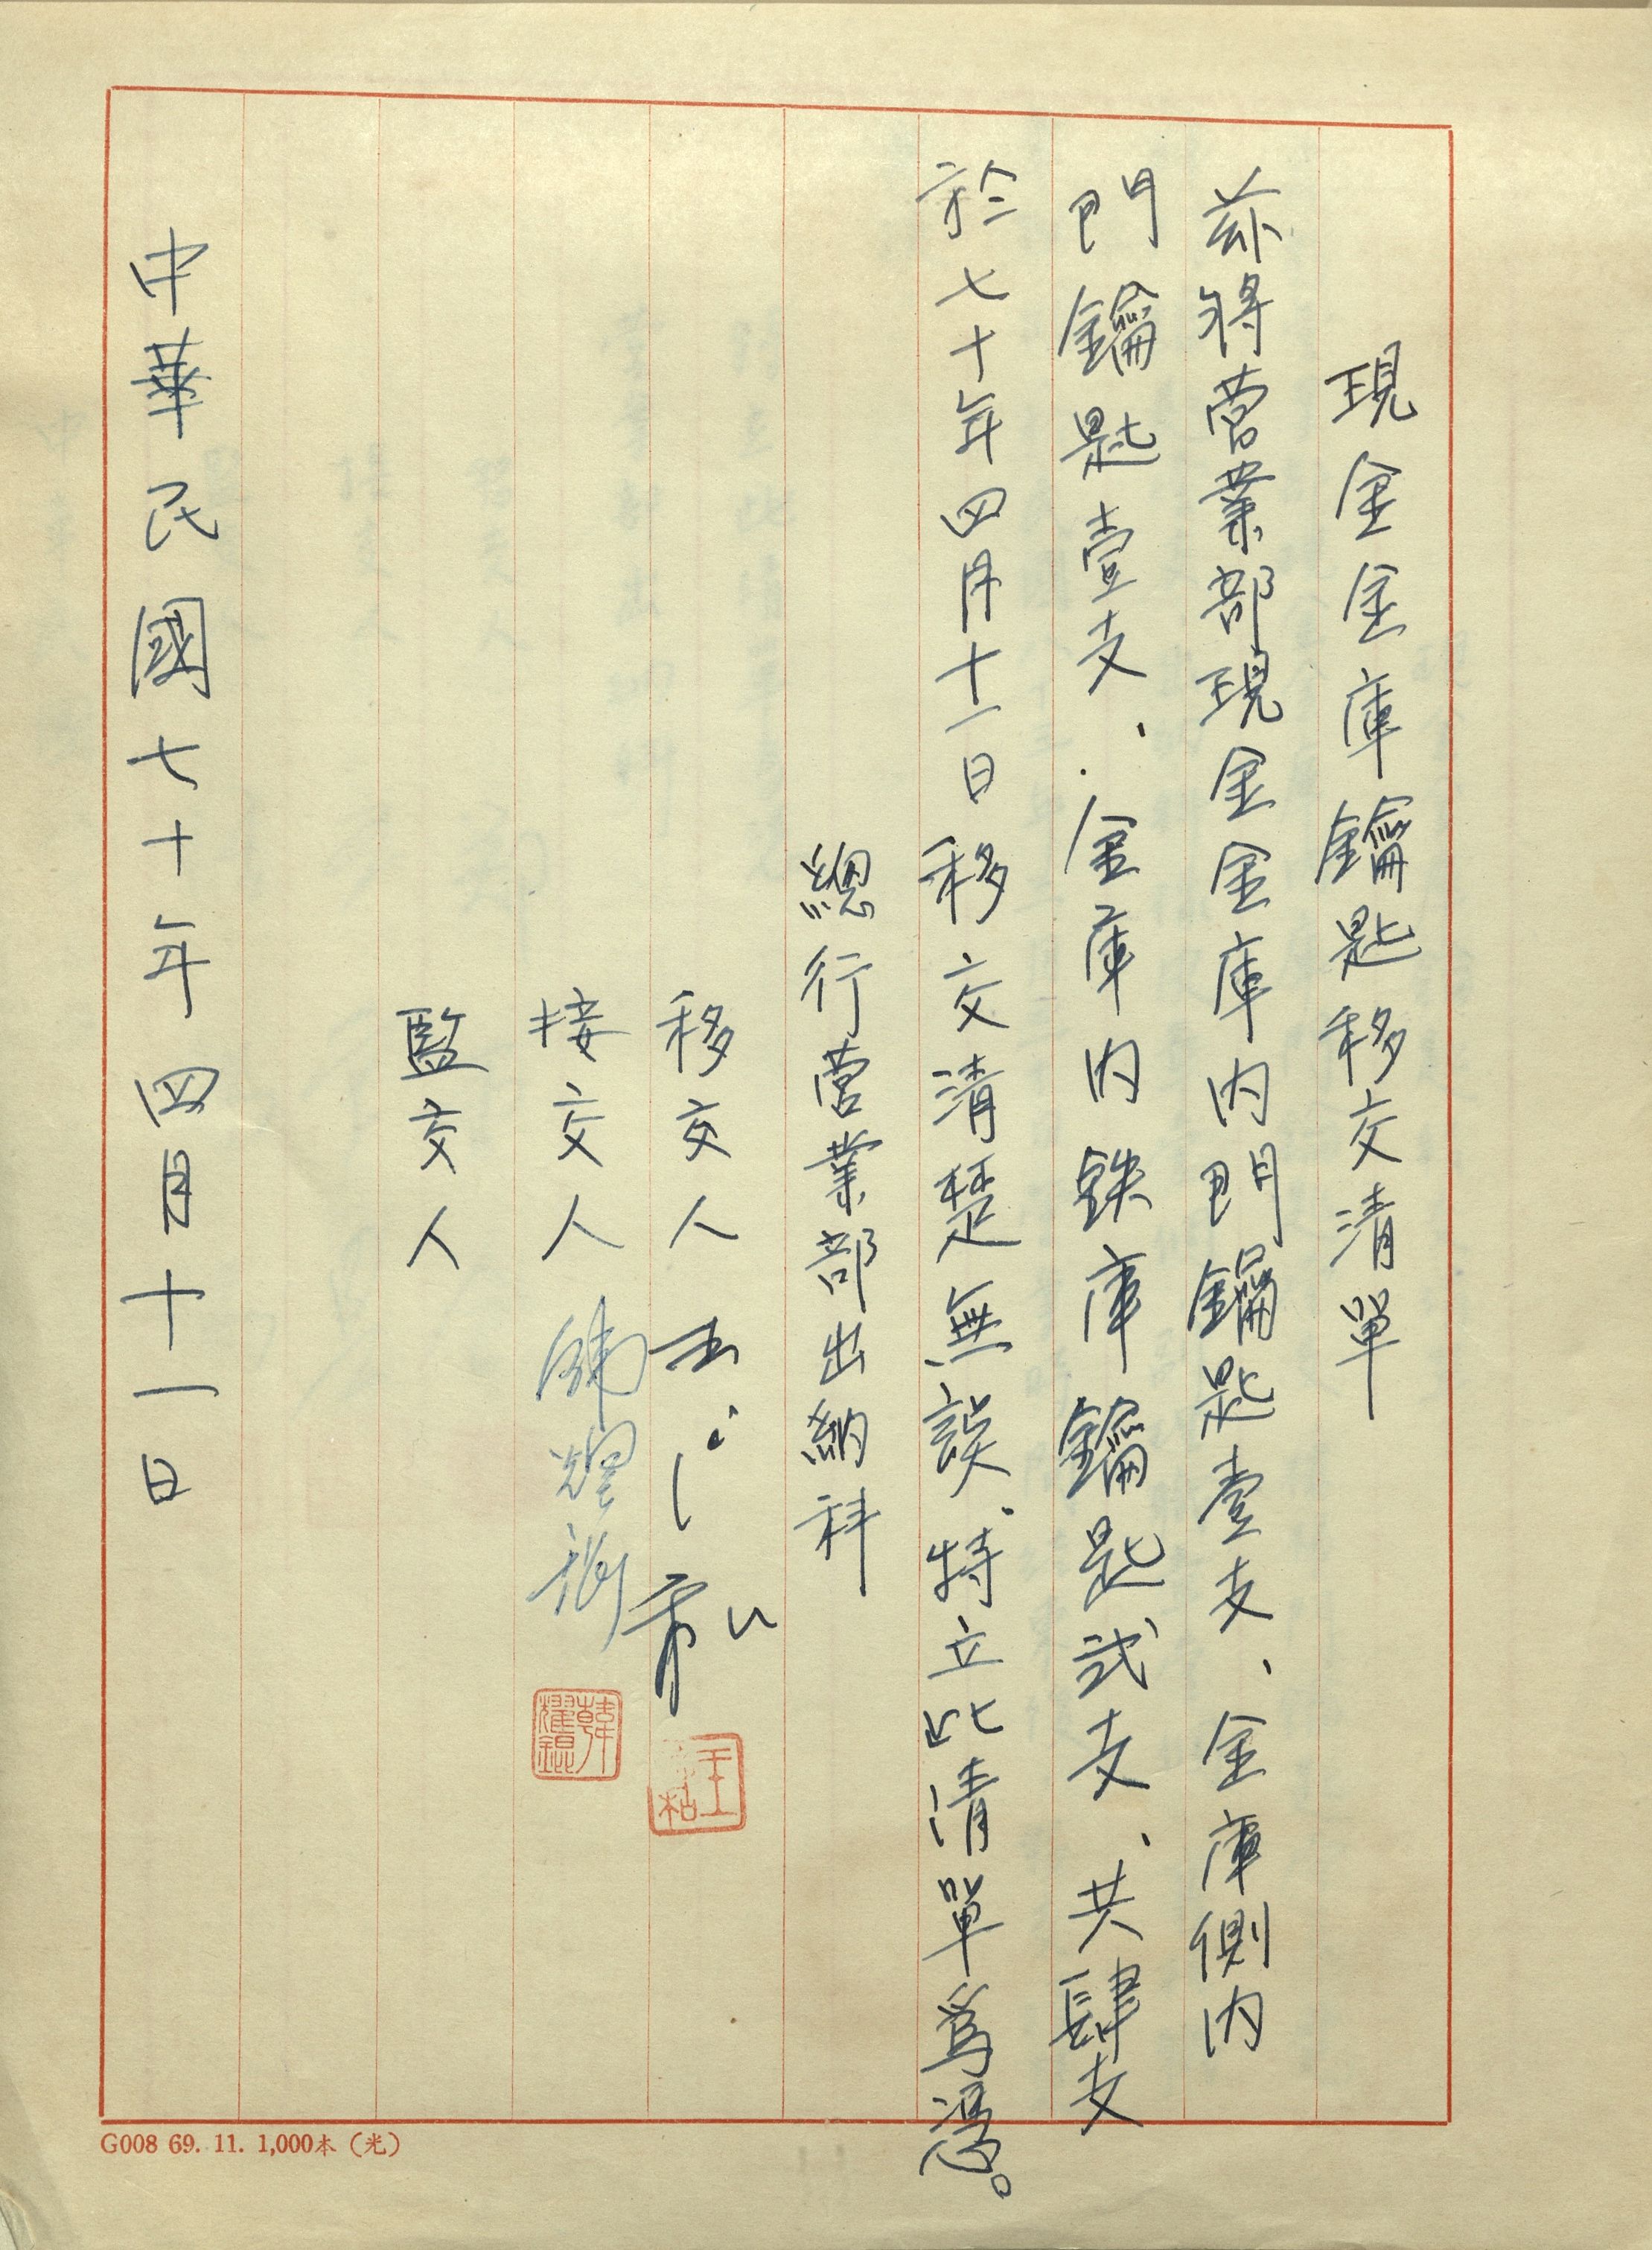 現金金庫鑰匙移交清單
茲將營業部現金金庫內門鑰匙壹支、金庫側內
門鑰匙壹支、金庫內鉄庫鑰匙弍支、共肆支
於七十年四月十一日移交清楚無誤、特立此清單為憑。
總行營業部出納科
移交人
接交人 韓耀
監交人
中華民國七十年四月十一日
G008 69. 11. 1,000本（光）